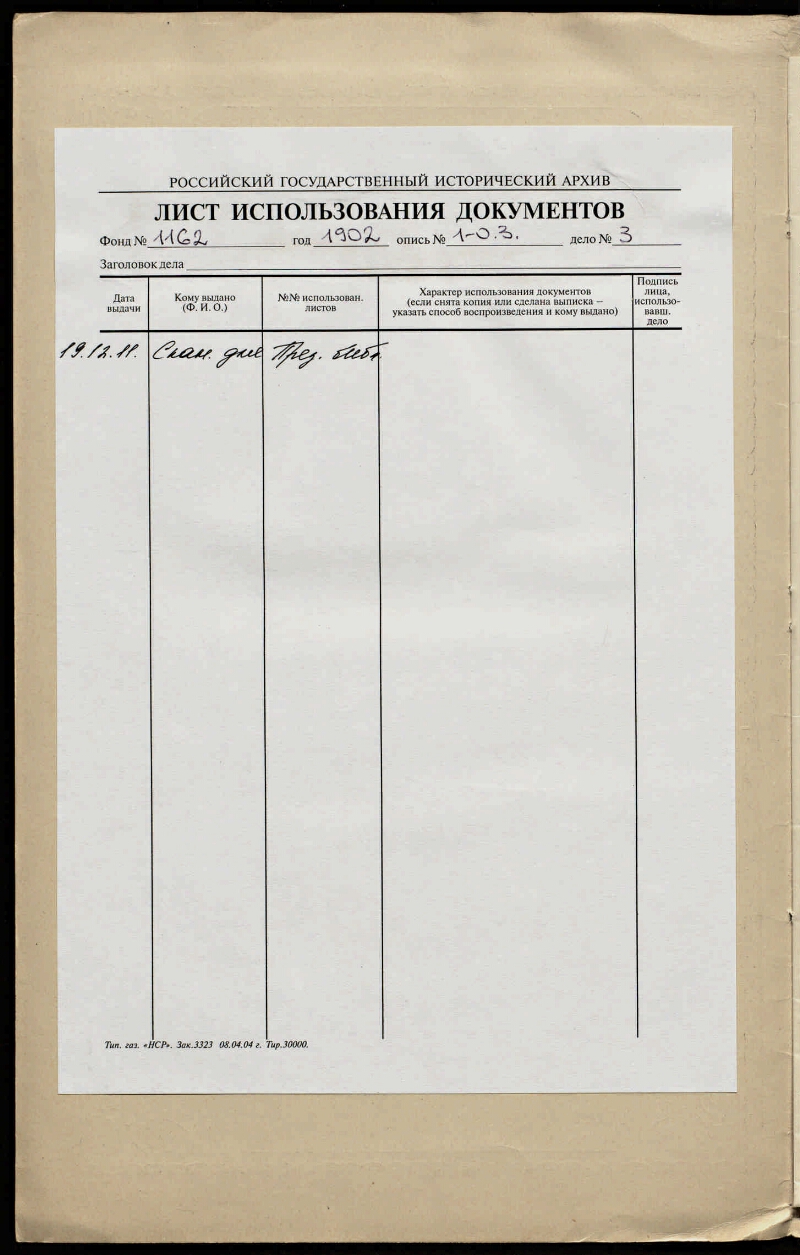 РОССИЙСКИЙ ГОСУДАРСТВЕННЫЙ ИСТОРИЧЕСКИЙ АРХИВ
ЛИСТ ИСПОЛЬЗОВАНИЯ ДОКУМЕНТОВ
Фонд № 1162 год 1902 опись № 1-О.З. дело № 3
Заголовок дела
Дата
выдачи
Кому выдано
(Ф. И. О.)
№№ использован.
листов
Характер использования документов
(если снята копия или сделана выписка –
указать способ воспроизведения и кому выдано)
Подпись
лица,
использо-
вавш.
дело
19.12.11. Скан. для През. библ.
Тип. газ. «НСР». Зак.3323 08.04.04 г. Тир.30000.